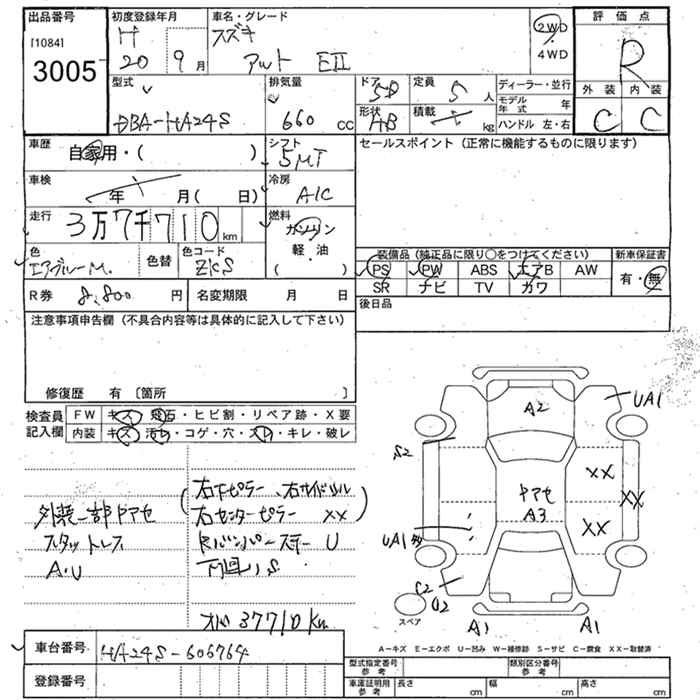 出品番号
[1084]
3005
初度登録年月
H
20 9月
車名・グレード
スズキ
アルト EⅡ
2WD
・
4WD
評価点
R
外装 内装
C C
型式
DBA-HA24S
排気量
660 CC
ドア
5D
形状
HB
定員
5 人
積載
kg
ディーラー・並行
モデル年式 年
ハンドル 左・右
車歴
自家用・( )
シフト
5MT
セールスポイント(正常に機能するものに限ります)
車検
年 月( 日)
冷房
A/C
走行
3万7千710km
燃料
ガソリン
軽・油
( )
色
エアブルーM.
色替
色コード
ZKS
装備品(純正品に限り○をつけてください)
新車保証書
PS PW ABS エアB AW
有・無
SR ナビ TV カワ
R券 8,800円
名変期限 月 日
後日品
注意事項申告欄(不具合内容等は具体的に記入して下さい)
修復歴 有〔箇所 〕
検査員
記入欄
FW キズ・飛石・ヒビ割・リペア跡・X要
内装 キズ・汚れ・コゲ・穴・スレ・キレ・破レ
外装一部ドアセ
スタットレス
A・U
(右Fピラー、右サイドシル
右センターピラー XX)
Rバンパーステー U
下回り、S
オド 37710km
A2
UA1
S2
XX
XX
XX
ドアセ
A3
UA1
C2
U2
スペア
A1
A1
A−キズ E−エクボ U−凹み W−補修跡 S−サビ C−腐食 XX−取替済
車台番号
HA24S-606764
登録番号
型式指定番号
参考
類別区分番号
参考
車庫証明用
参考
長さ cm
幅 cm
高さ cm